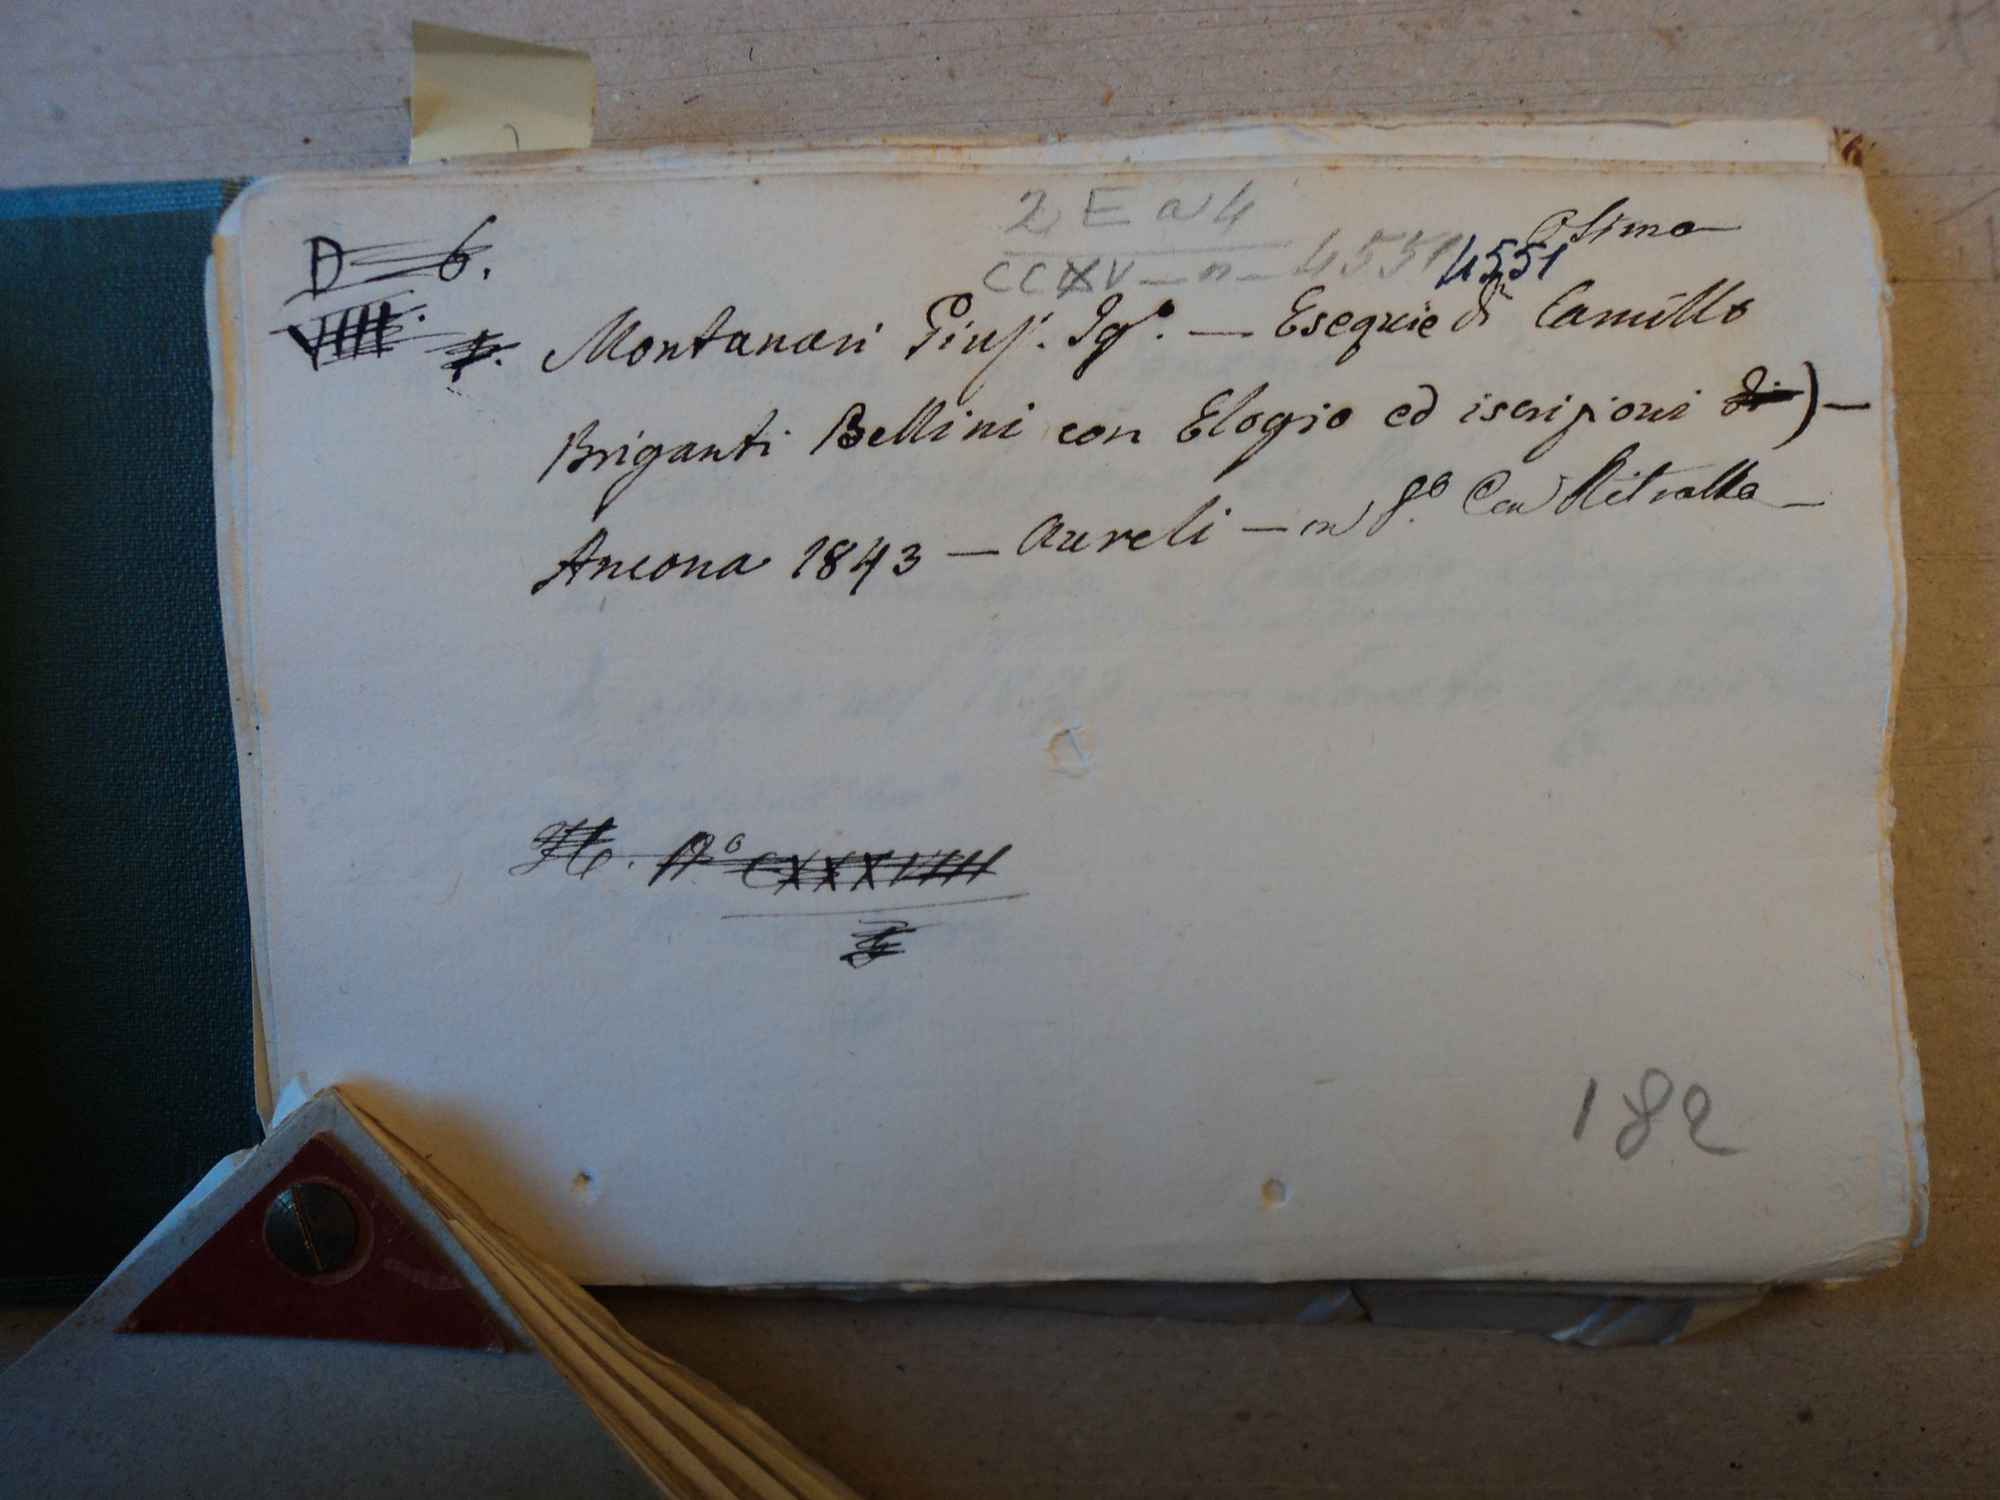 2 E a 4
D 6. CCXV - n - 4551 4551 Osimo
VIIII. Montanari Gius. Ig.º — Esequie di Camillo
Briganti Bellini con Elogio ed iscrizioni di) —
Ancona 1843 — Aureli — in 8.º Con Ritratto —
Nº CXXXVIIII
182